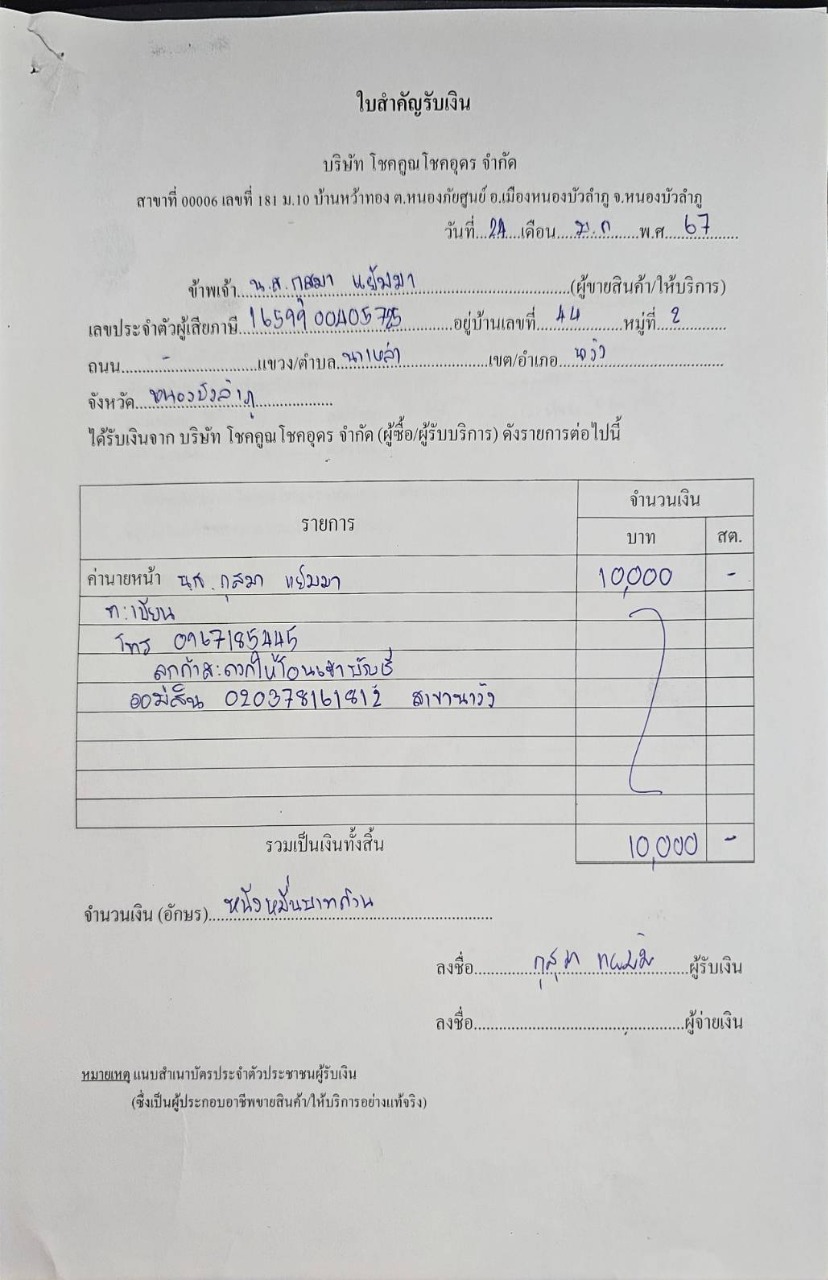 ใบสำคัญรับเงิน
บริษัท โชคคูณโชคอุดร จำกัด
สาขาที่ 00006 เลขที่ 181 ม.10 บ้านหว้าทอง ต.หนองภัยศูนย์ อ.เมืองหนองบัวลำภู จ.หนองบัวลำภู
วันที่...24...เดือน.....ม.ค......พ.ศ.....67......
ข้าพเจ้า...น.ส. กุสุมา แย้มมา...(ผู้ขายสินค้า/ให้บริการ)
เลขประจำตัวผู้เสียภาษี...อยู่บ้านเลขที่....44....หมู่ที่...2...
ถนน.....-.....แขวง/ตำบล..นาเหล่า.....เขต/อำเภอ...นาวัง.....
จังหวัด...หนองบัวลำภู...
ได้รับเงินจาก บริษัท โชคคูณโชคอุดร จำกัด (ผู้ซื้อ/ผู้รับบริการ) ดังรายการต่อไปนี้
รายการ จำนวนเงิน
บาท สต.
ค่านายหน้า นส. กุสุมา แย้มมา 10,000 -
ทะเบียน
โทร 0967185445
ลูกค้าสะดวกให้โอนเข้าบัญชี
ออมสิน 020378161812 สาขานาวัง
รวมเป็นเงินทั้งสิ้น 10,000 -
จำนวนเงิน (อักษร)...หนึ่งหมื่นบาทถ้วน...
ลงชื่อ...กุสุมา...ผู้รับเงิน
ลงชื่อ...ผู้จ่ายเงิน
หมายเหตุ แนบสำเนาบัตรประจำตัวประชาชนผู้รับเงิน
(ซึ่งเป็นผู้ประกอบอาชีพขายสินค้า/ให้บริการอย่างแท้จริง)